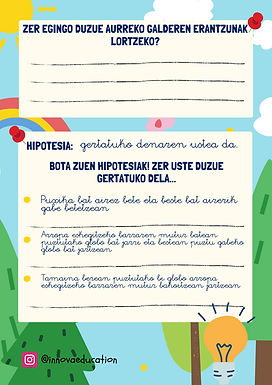 ZER EGINGO DUZUE AURREKO GALDEREN ERANTZUNAK
LORTZEKO?
HIPOTESIA: gertatuko denaren ustea da.
BOTA ZUEN HIPOTESIAK! ZER USTE DUZUE
GERTATUKO DELA...
Puxika bat airez bete eta beste bat airerik
gabe betetzean
Arropa eskegitzeko barraren mutur batean
puztutako globo bat jarri eta bestean puztu gabeko
globo bat jartzean
Tamaina berean puztutako bi globo arropa
eskegitzeko barraren mutur bakoitzean jartzean
@innovaeducation